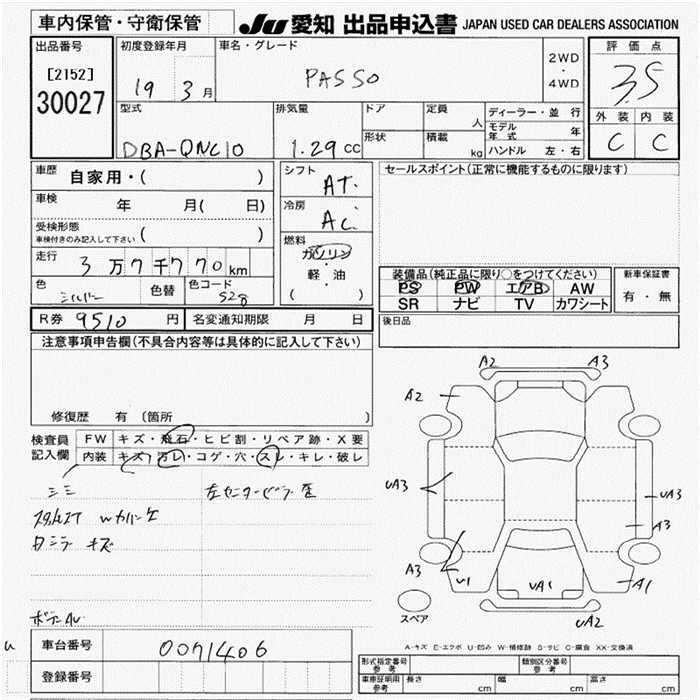 車内保管・守衛保管
JU 愛知 出品申込書 JAPAN USED CAR DEALERS ASSOCIATION
出品番号
[2152]
30027
初度登録年月
19 3月
車名・グレード
PASSO
2WD
・
4WD
評価点
3.5
外装 内装
C C
型式
DBA-QNC10
排気量
1.29cc
ドア
形状
定員
人
積載
kg
ディーラー・並行
モデル年式 年
ハンドル 左・右
車歴
自家用・( )
車検
年 月( 日)
受検形態
車検付きのみ記入して下さい ( )
走行
3万7千770km
色
シルバー
色替
色コード
S28
シフト
AT
冷房
AC
燃料
ガソリン
・
軽・油
( )
セールスポイント(正常に機能するものに限ります)
装備品(純正品に限り○をつけてください)
PS PW エアB AW
SR ナビ TV カワシート
新車保証書
有・無
後日品
R券 9510 円
名変通知期限 月 日
注意事項申告欄(不具合内容等は具体的に記入して下さい)
修復歴 有 〔箇所 〕
検査員
記入欄
FW キズ・飛石・ヒビ割・リペア跡・X要
内装 キズ・汚レ・コゲ・穴・スレ・キレ・破レ
シミ
キズ
ボデーAU
A2 A3
A2
UA3
UA3
A3
A3
U1
UA1
A1
UA2
スペア
A-キズ E-エクボ U-凹み W-補修跡 S-サビ C-腐食 XX-交換済
車台番号
0071406
登録番号
形式指定番号
参考
類別区分番号
参考
車庫証明用
参考
長さ cm 幅 cm 高さ cm